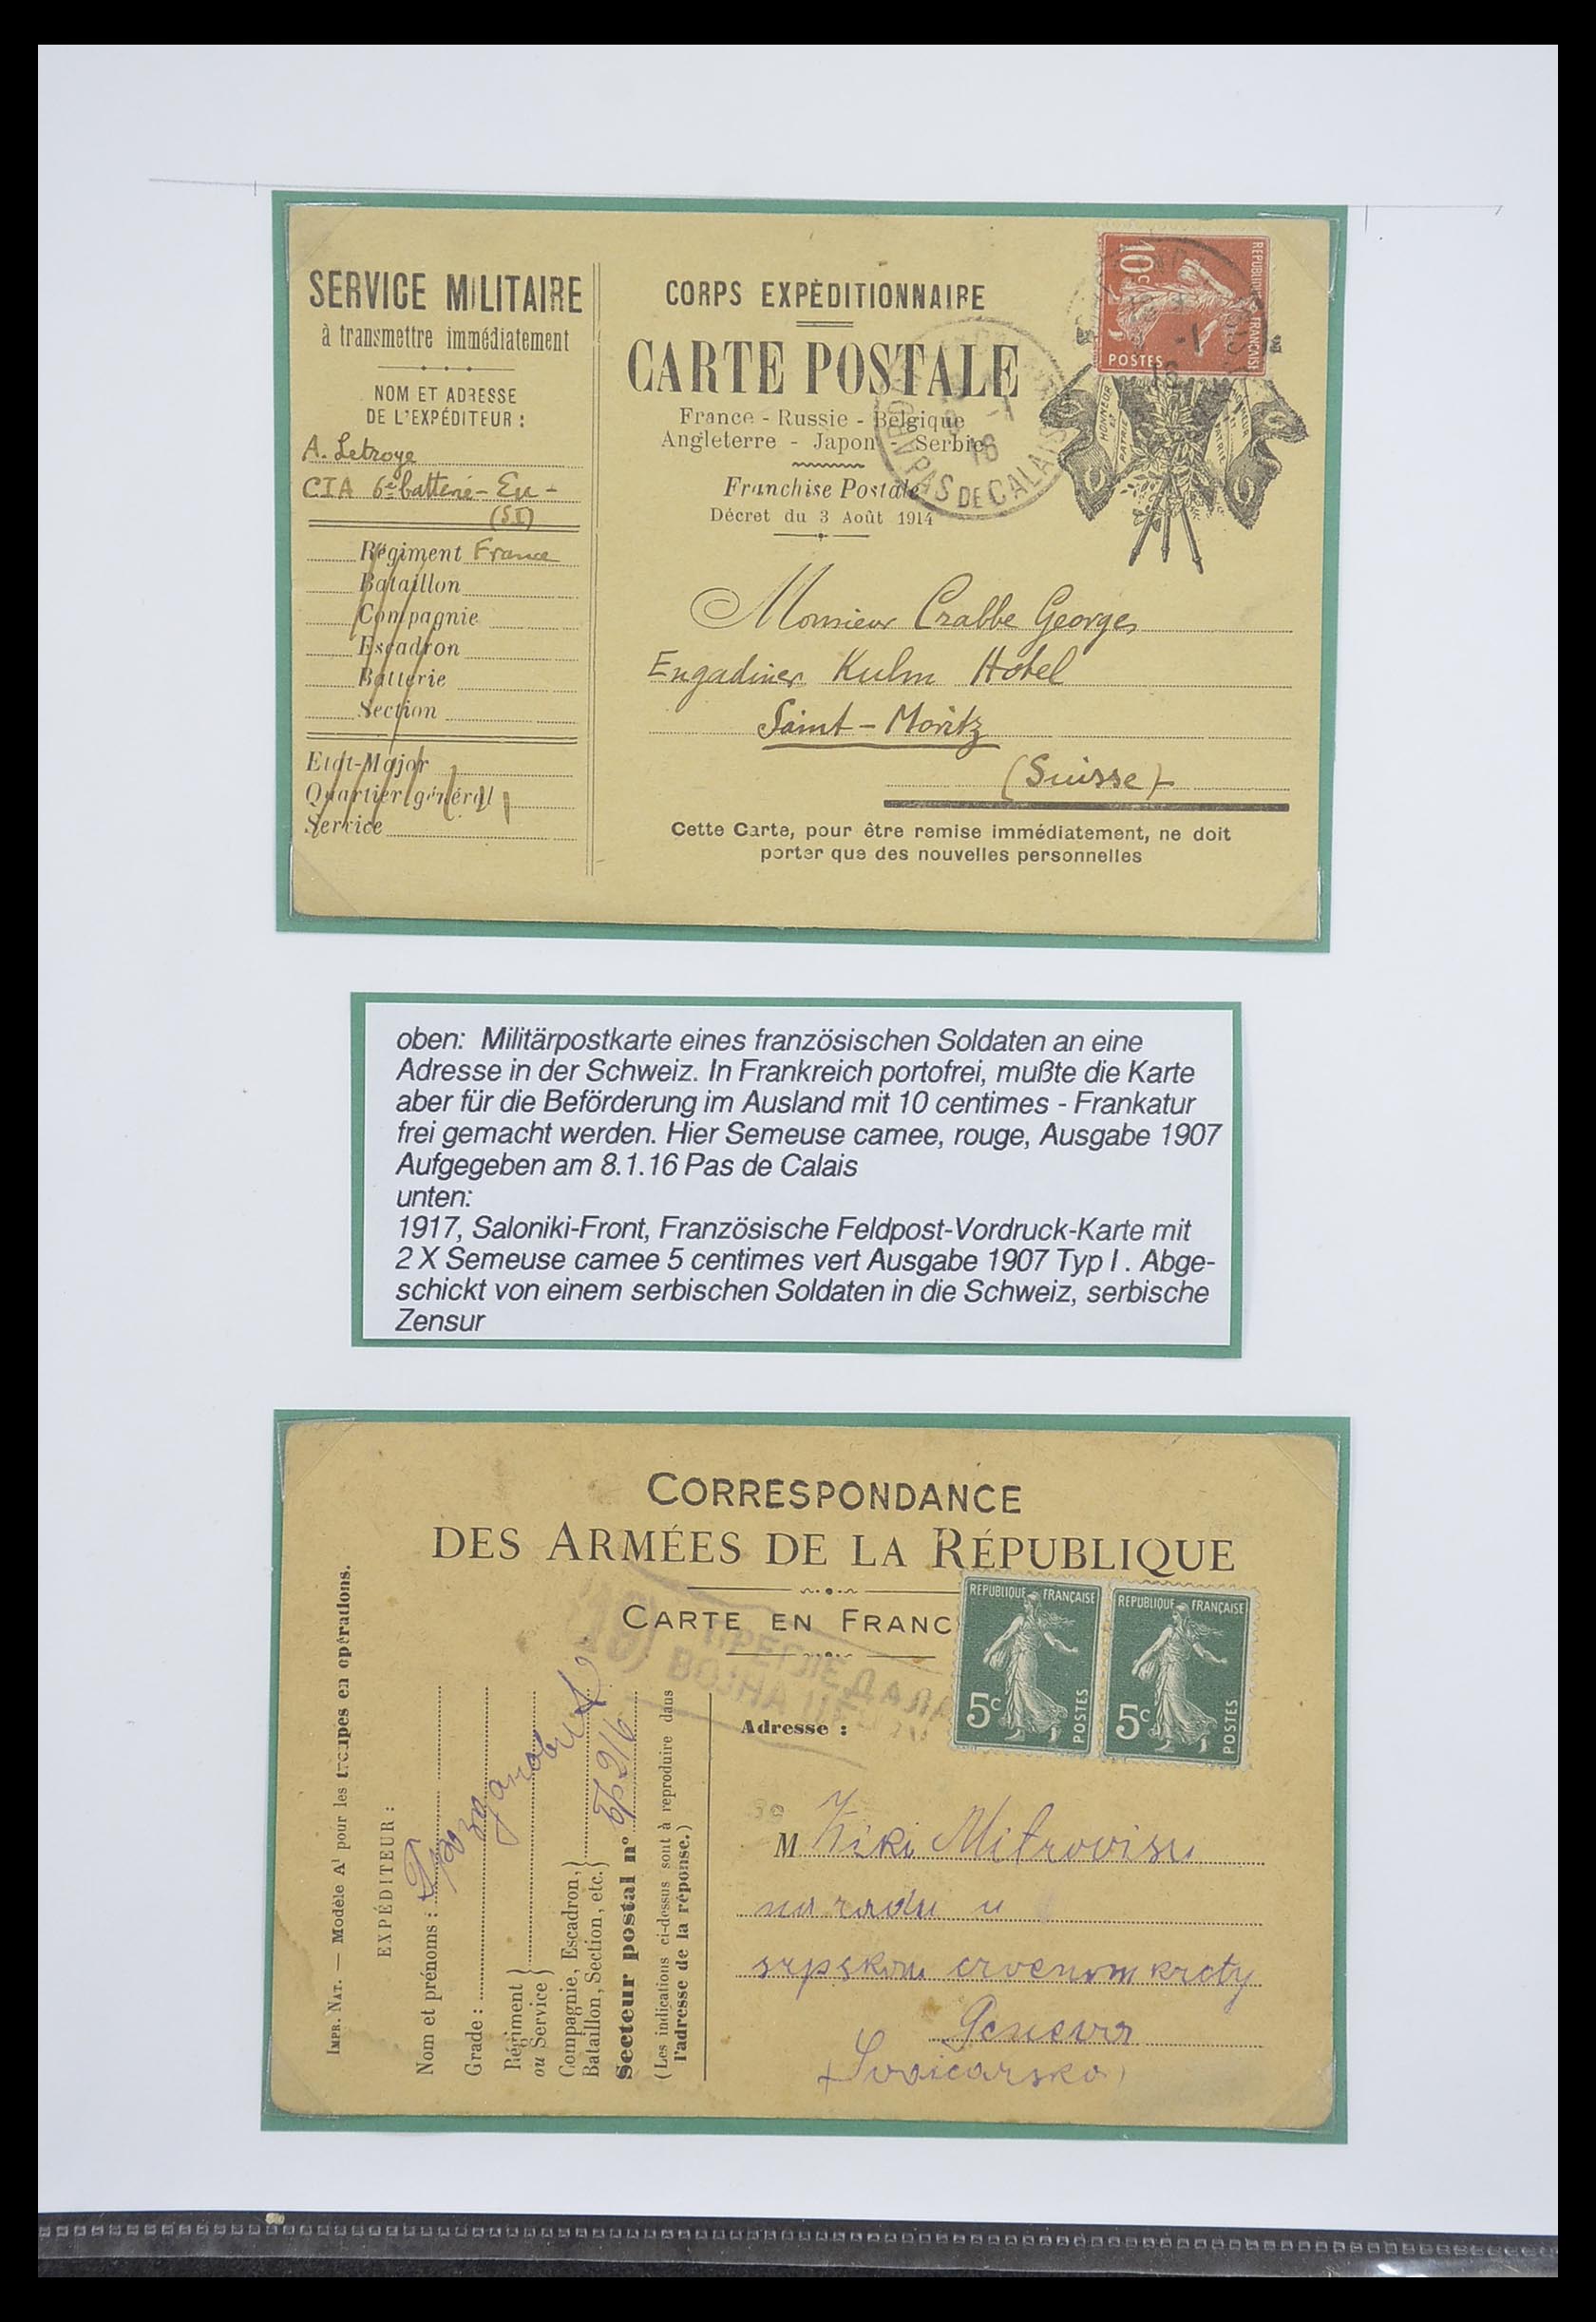 SERVICE MILITAIRE
à transmettre immédiatement
NOM ET ADRESSE
DE L'EXPÉDITEUR :
A. Letroye
CIA 6e batterie - Eu -
(S I)
Régiment France
Bataillon
Compagnie
Escadron
Batterie
Section
Etat-Major
Quartier général
Service
CORPS EXPÉDITIONNAIRE
CARTE POSTALE
France - Russie - Belgique
Angleterre - Japon - Serbie
Franchise Postale
Décret du 3 Août 1914
PAS DE CALAIS
-1
16
REPUBLIQUE FRANÇAISE
10c
POSTES
HONNEUR
ET
PATRIE
HONNEUR
ET
PATRIE
Monsieur Crabbe Georges
Engadiner Kulm Hotel
Saint-Moritz
(Suisse)
Cette Carte, pour être remise immédiatement, ne doit
porter que des nouvelles personnelles
oben: Militärpostkarte eines französischen Soldaten an eine
Adresse in der Schweiz. In Frankreich portofrei, mußte die Karte
aber für die Beförderung im Ausland mit 10 centimes - Frankatur
frei gemacht werden. Hier Semeuse camee, rouge, Ausgabe 1907
Aufgegeben am 8.1.16 Pas de Calais
unten:
1917, Saloniki-Front, Französische Feldpost-Vordruck-Karte mit
2 X Semeuse camee 5 centimes vert Ausgabe 1907 Typ I . Abge-
schickt von einem serbischen Soldaten in die Schweiz, serbische
Zensur
CORRESPONDANCE
DES ARMÉES DE LA RÉPUBLIQUE
CARTE EN FRANC
REPUBLIQUE FRANÇAISE
5c
POSTES
REPUBLIQUE FRANÇAISE
5c
POSTES
(19)
ПРЕГЛЕДАЛА
ВОЈНА
IMPR. NAT. — Modèle A1 pour les troupes en opérations.
EXPÉDITEUR :
Nom et prénoms :
Grade :
Régiment
ou Service
Compagnie, Escadron,
Bataillon, Section, etc.
Secteur postal n° Бр 216
(Les indications ci-dessus sont à reproduire dans
l'adresse de la réponse.)
Adresse :
M Kiki Mitrovisu
na radu u
srpskom crvenom krstu
Geneva
(Svaicarska)